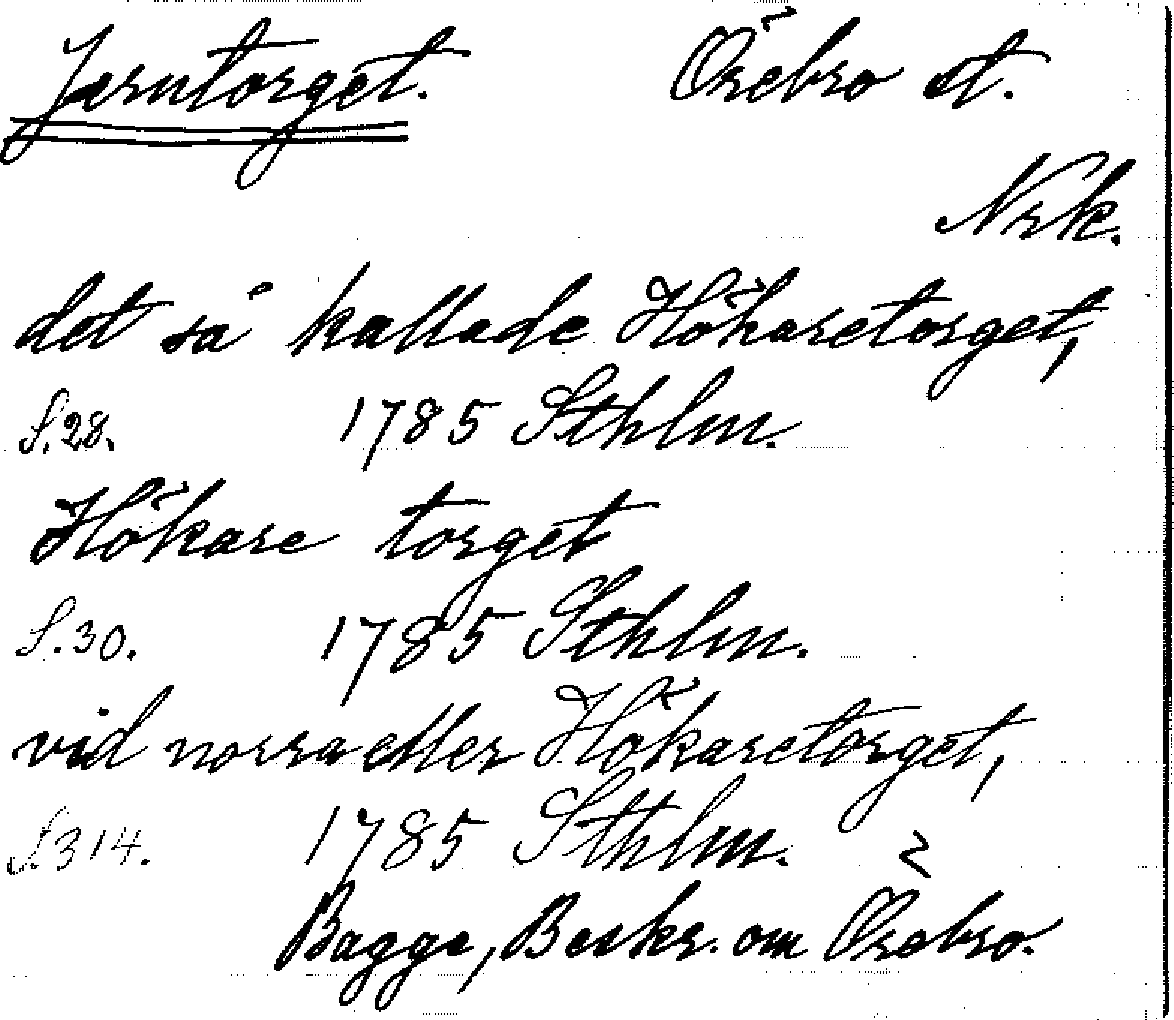 Jerntorget. Örebro st.
Nrk.
det så kallade Hökaretorget,
S.28. 1785 Sthlm.
Hökare torget
S.30. 1785 Sthlm.
vid norra eller Hökaretorget,
S.314. 1785 Sthlm.
Bagge, Beskr. om Örebro.